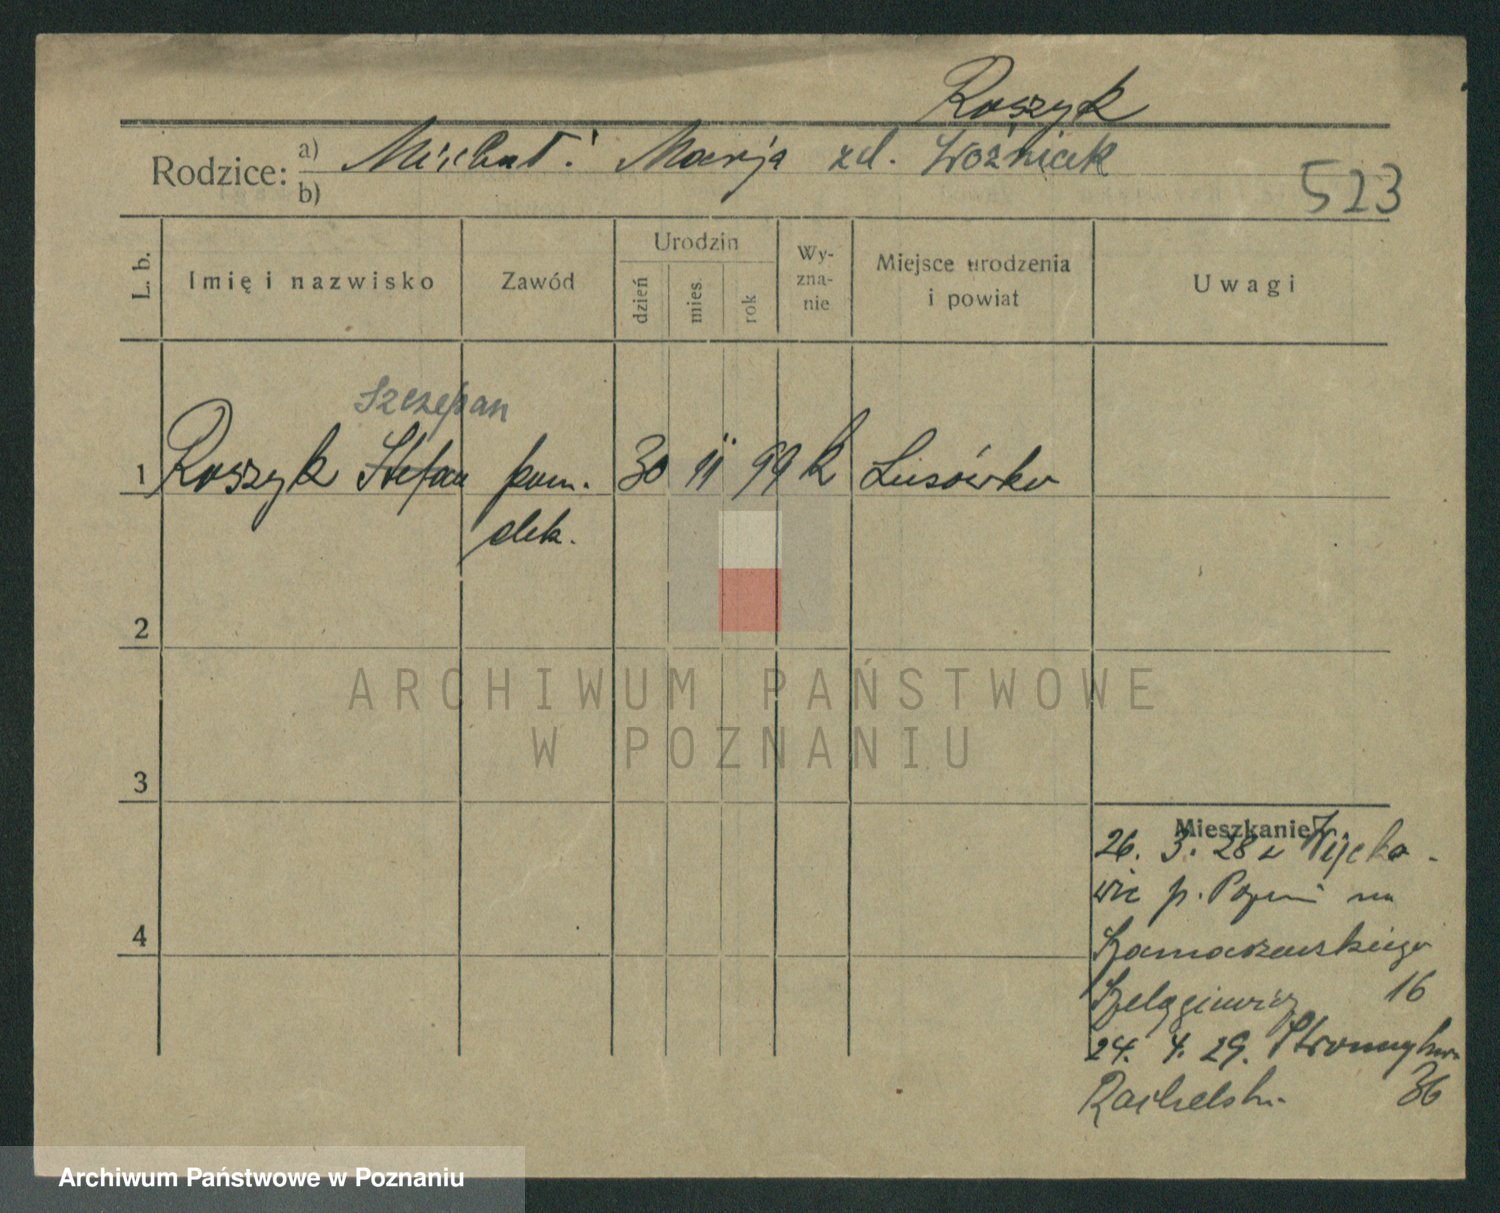 Roszyk
Rodzice: a) Michał i Marja zd. Woźniak
b)
523
L. b.
Imię i nazwisko
Zawód
Urodzin
dzień
mies.
rok
Wy-
zna-
nie
Miejsce urodzenia
i powiat
Uwagi
Szczepan
1 Roszyk Stefan pom. 30 11 99 k Lusówko
dek.
2
ARCHIWUM PAŃSTWOWE
W POZNANIU
3
Mieszkanie
26. 3. 28 z
wic p. na
4
Szamarzewskiego
16
24. 4. 29.
36
Archiwum Państwowe w Poznaniu